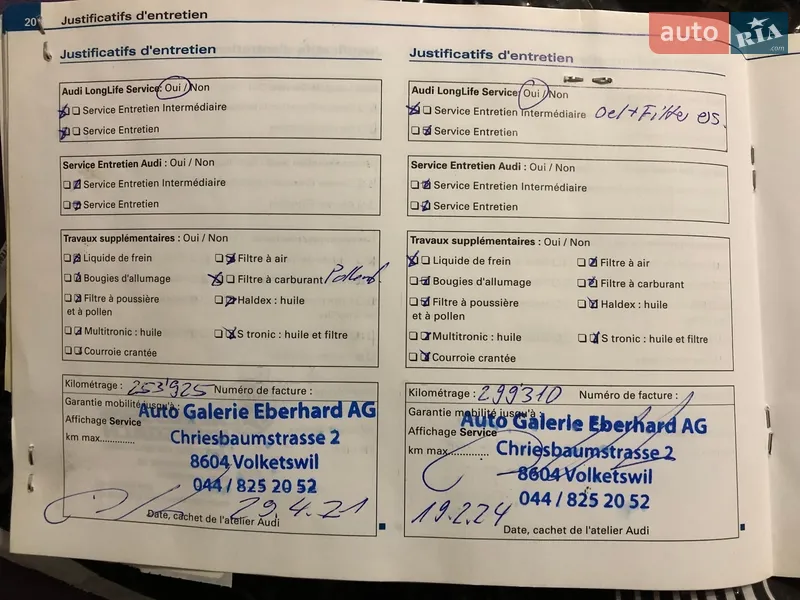 20
Justificatifs d'entretien
auto RIA .com
Justificatifs d'entretien
Audi LongLife Service: Oui / Non
Service Entretien Intermédiaire
Service Entretien
Service Entretien Audi : Oui / Non
Service Entretien Intermédiaire
Service Entretien
Travaux supplémentaires : Oui / Non
Liquide de frein
Filtre à air
Bougies d'allumage
Filtre à carburant
Filtre à poussière
et à pollen
Haldex : huile
Multitronic : huile
S tronic : huile et filtre
Courroie crantée
Kilométrage : 253'925 Numéro de facture :
Garantie mobilité jusqu'à :
Affichage Service
km max.............
Auto Galerie Eberhard AG
Chriesbaumstrasse 2
8604 Volketswil
044 / 825 20 52
29.4.21
Date, cachet de l'atelier Audi
Justificatifs d'entretien
Audi LongLife Service: Oui / Non
Service Entretien Intermédiaire Oel + Filter
Service Entretien
Service Entretien Audi : Oui / Non
Service Entretien Intermédiaire
Service Entretien
Travaux supplémentaires : Oui / Non
Liquide de frein
Filtre à air
Bougies d'allumage
Filtre à carburant
Filtre à poussière
et à pollen
Haldex : huile
Multitronic : huile
S tronic : huile et filtre
Courroie crantée
Kilométrage : 299310 Numéro de facture :
Garantie mobilité jusqu'à :
Affichage Service
km max.............
Auto Galerie Eberhard AG
Chriesbaumstrasse 2
8604 Volketswil
044 / 825 20 52
19.2.24
Date, cachet de l'atelier Audi